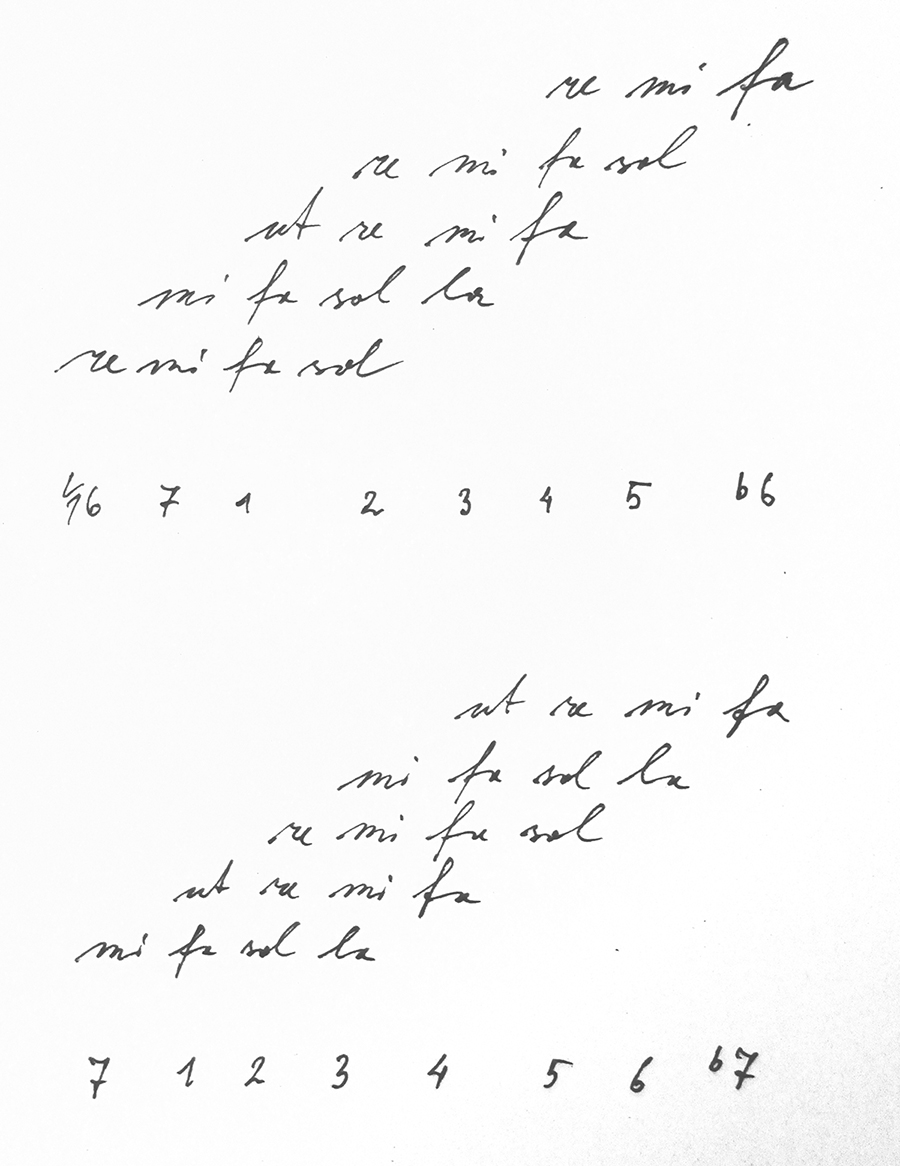 re mi fa
re mi fa sol
ut re mi fa
mi fa sol la
re mi fa sol
♮6 7 1 2 3 4 5 b6
ut re mi fa
mi fa sol la
re mi fa sol
ut re mi fa
mi fa sol la
7 1 2 3 4 5 6 b7